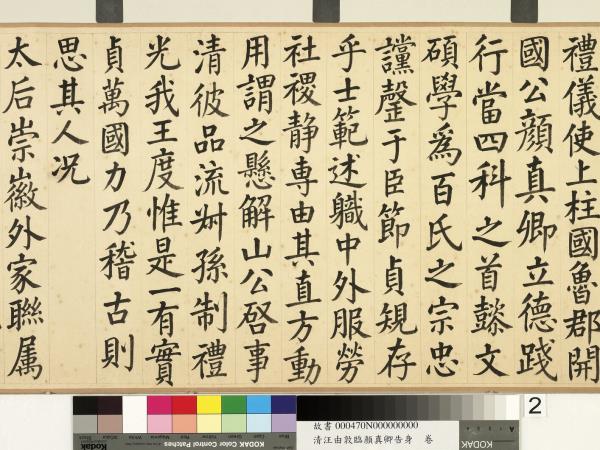 禮儀使上柱國魯郡開
國公顔真卿立德踐
行當四科之首懿文
碩學為百氏之宗忠
讜罄于臣節貞規存
乎士範述職中外服勞
社稷静専由其直方動
用謂之懸解山公啓事
清彼品流叔孫制禮
光我王度惟是一有實
貞萬國力乃稽古則
思其人况
太后崇徽外家聯属
2
KODAK Color Control Patches
Kodak
故書 000470N000000000
清汪由敦臨顏真卿告身 卷
KODAK